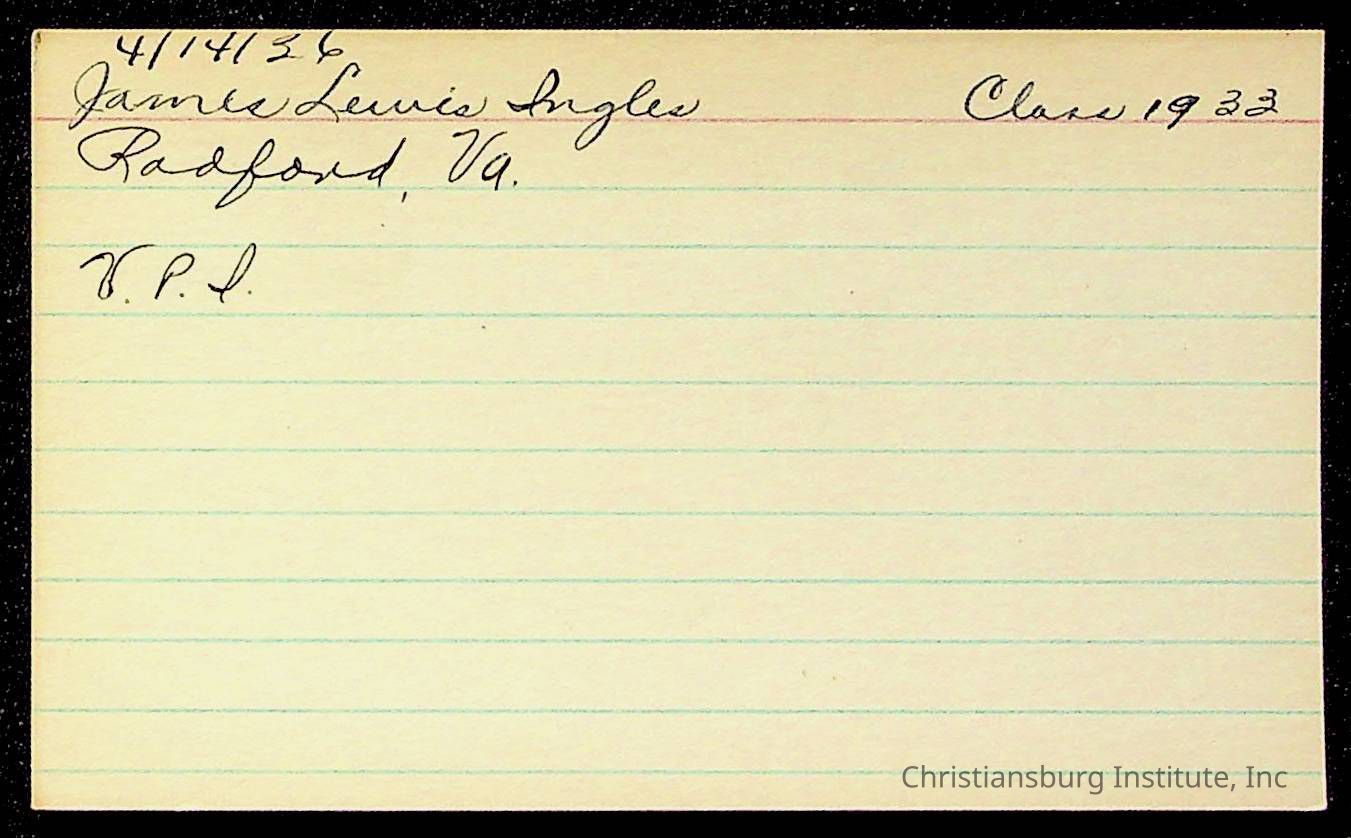 4/14/36
James Lewis Ingles Class 1933
Radford, Va.
V. P. I.
Christiansburg Institute, Inc